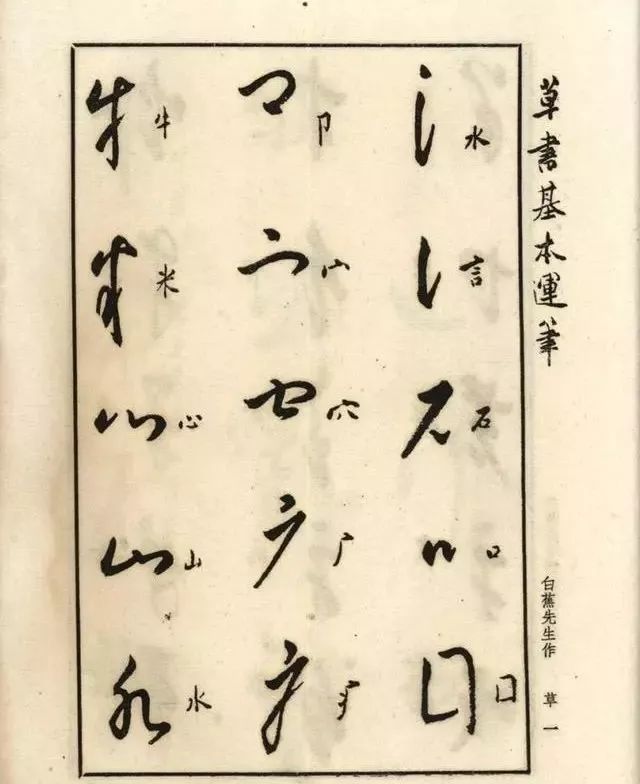 草書基本運筆
白蕉先生作 草一
水 言 石 口 囗
卩 宀 穴 厂
牛 米 心 山 水